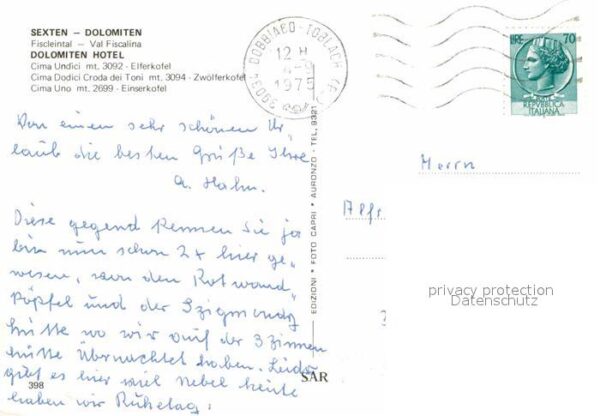 SEXTEN – DOLOMITEN
Fiscleintal – Val Fiscalina
DOLOMITEN HOTEL
Cima Undici mt. 3092 - Elferkofel
Cima Dodici Croda dei Toni mt. 3094 - Zwölferkofel
Cima Uno mt. 2699 - Einserkofel
39034 DOBBIACO-TOBLACH
12 H
1975
LIRE 70
REPUBBLICA
ITALIANA
Von einen sehr schönen Ur„
laub die besten Grüße Ihre
A. Hahn.
Diese gegend kennen Sie ja
bin nun schon 2x hier ge„
wesen, von den Rotwand„
Köpfel und der 3zigmondy
hütte wo wir auf der 3zinnen
hütte Übernachtet haben. Leider
gibt es hier viel Nebel heute
haben wir Ruhetag.
398
EDIZIONI • FOTO CAPRI • AURONZO - TEL. 9321
SAR
Herrn
Alfr
privacy protection
Datenschutz